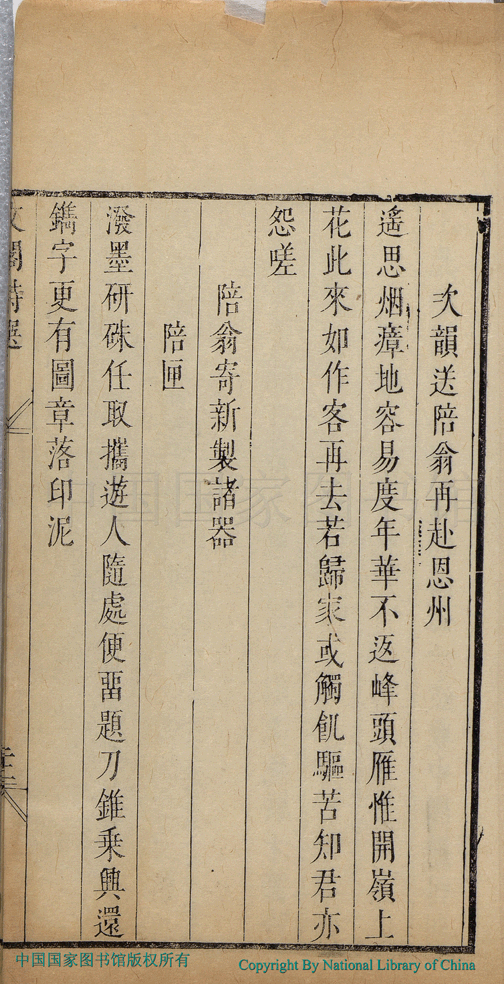 次韻送陪翁再赴恩州
遙思烟瘴地容易度年華不返峰頭雁惟開嶺上
花此來如作客再去若歸家或觸飢驅苦知君亦
怨嗟
陪翁寄新製諸器
陪匣
潑墨研硃任取攜遊人隨處便畱題刀錐乗興還
鐫字更有圖章落印泥
中国国家图书馆版权所有
Copyright By National Library of China